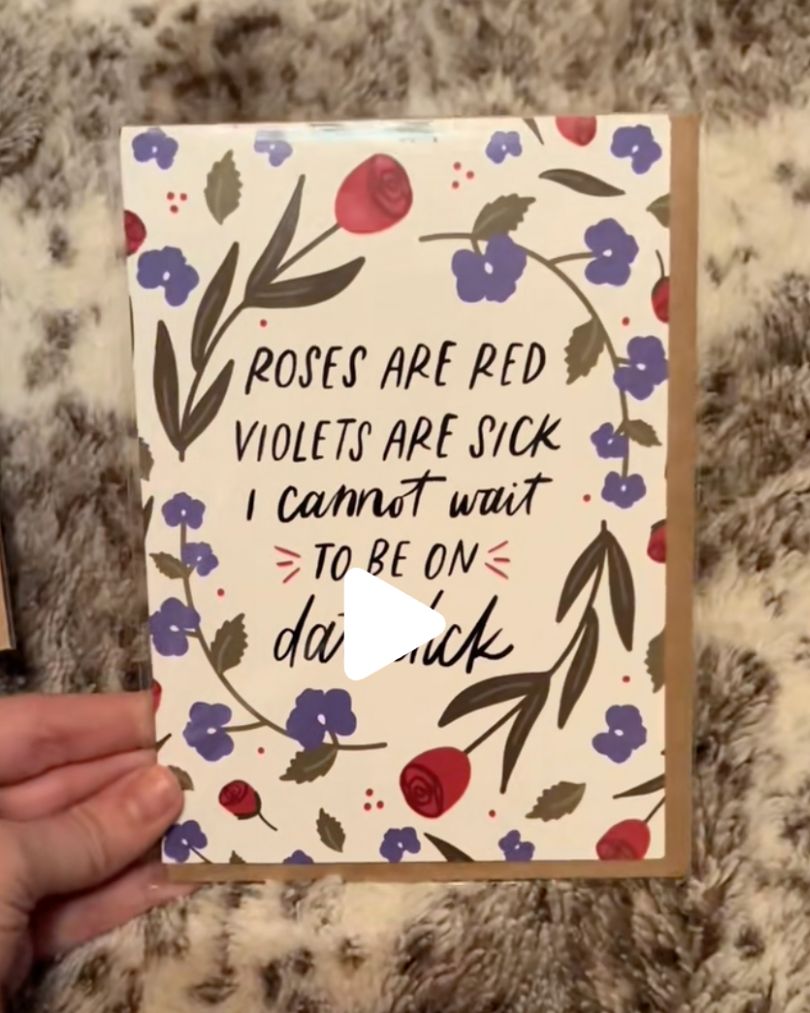 ROSES ARE RED
VIOLETS ARE SICK
I cannot wait
TO BE ON